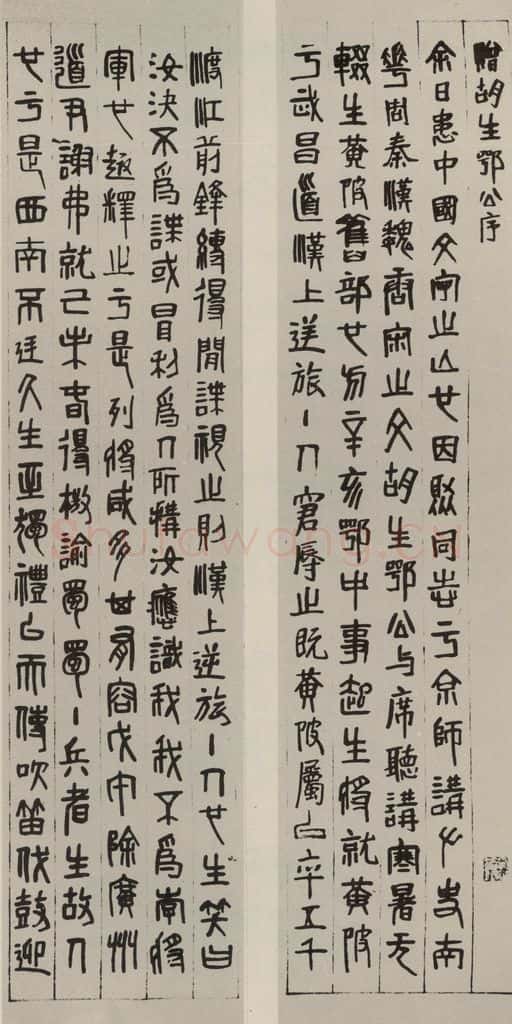 贈胡生鄂公序
余日患中國文字之亡也因同志于京師講史南
華周秦漢魏齊宋之文胡生鄂公与席聽講寒暑无
輟生黃陂舊部也方辛亥鄂中事起生將就黃陂
于武昌道漢上逆旅人窘辱之既黃陂屬以卒五千
渡江前鋒縛得閒諜視之則漢上逆旅人也生笑曰
汝決不爲諜或冒利爲人所構汝應識我我不爲將
軍也趣釋之于是列將咸多其有容戊申除廣州
道尹謝弗就己未春得檄諭蜀蜀兵者生故人
也于是西南不廷久生獨禮以而傳吹笛伐鼓迎
shufawang.cn